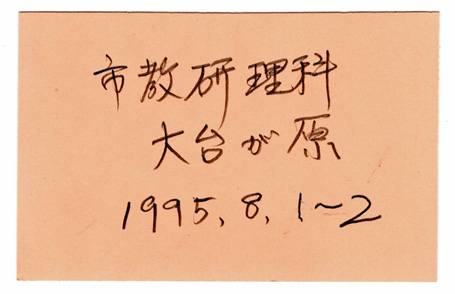 市教研理科
大台が原
1995, 8, 1~2